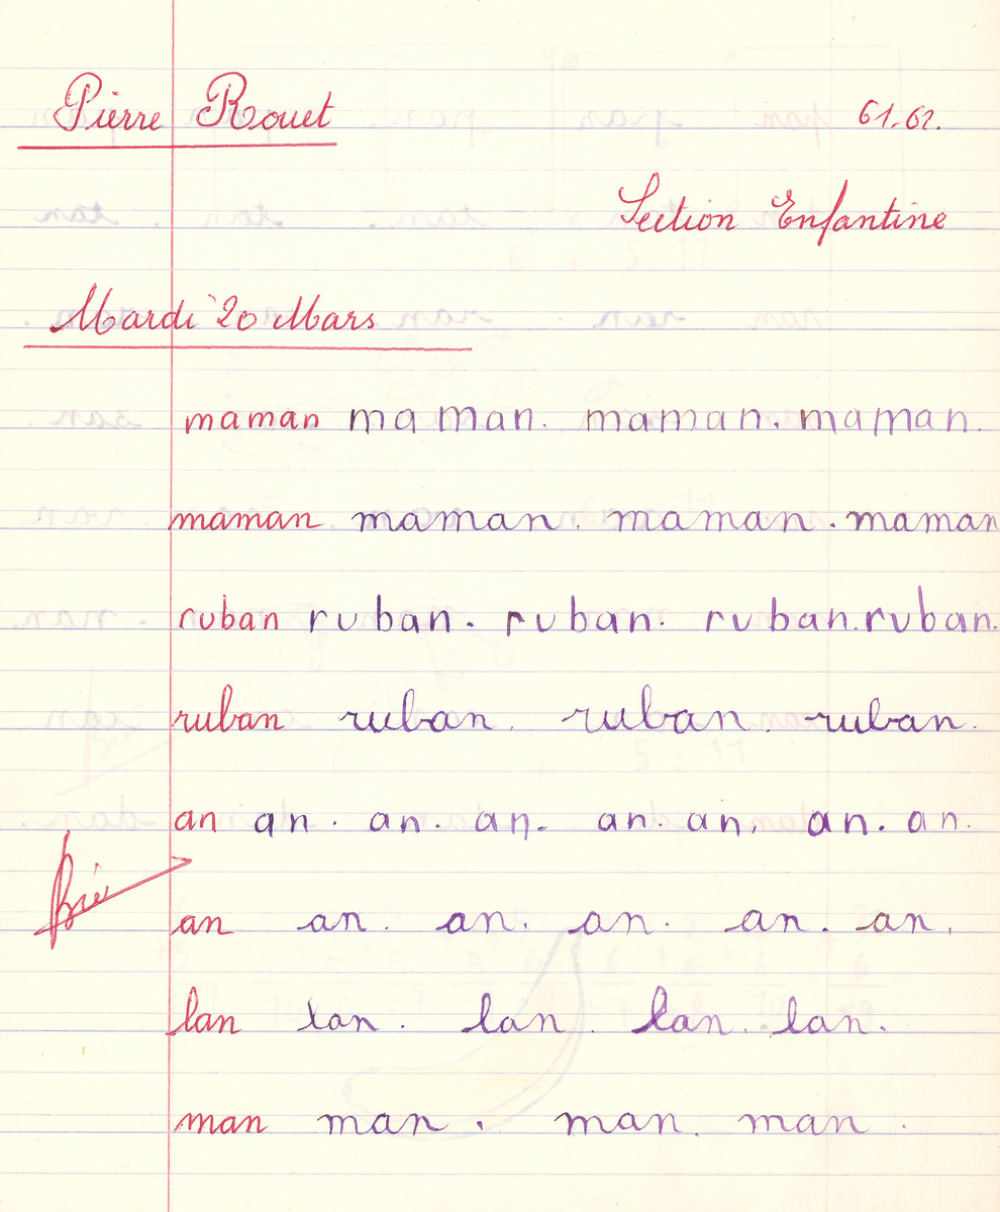 Pierre Rouet 61-62.
Section Enfantine
Mardi 20 Mars
maman maman. maman. maman.
maman maman. maman. maman
ruban ruban. ruban. ruban. ruban.
ruban ruban. ruban. ruban.
an an. an. an. an. an. an. an.
Bien
an an. an. an. an. an.
lan lan. lan. lan. lan.
man man. man. man.